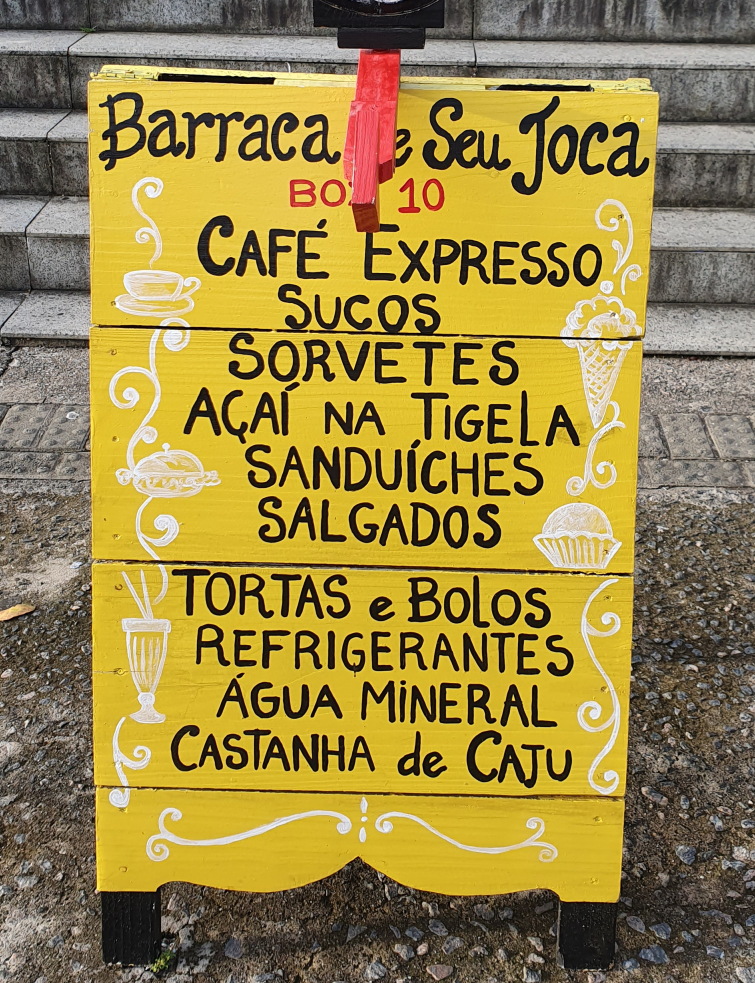 Barraca de Seu Joca
BOX 10
CAFÉ EXPRESSO
SUCOS
SORVETES
AÇAÍ NA TIGELA
SANDUÍCHES
SALGADOS
TORTAS e BOLOS
REFRIGERANTES
ÁGUA MINERAL
CASTANHA de CAJU